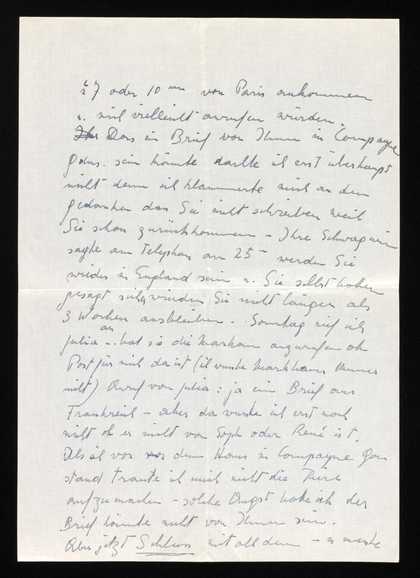 27 oder 10 von Paris ankommen
u. mich vielleicht anrufen würden.
Das ein Brief von Ihnen in Compayne
Gdns. sein könnte dachte ich erst überhaupt
nicht denn ich klammerte mich an den
gedanken das Sie nicht schreiben weil
Sie schon zurückkommen – Ihre Schwägerin
sagte am Telephon am 25 – werden Sie
wieder in England sein u. Sie selbst haben
gesagt sicher würden Sie nicht länger als
3 Wochen ausbleiben. Sonntag rief ich
Julia an – bat sie die Markham anzurufen ob
Post für mich da ist (ich wusste Markhams Nummer
nicht) Anruf von Julia: ja ein Brief aus
Frankreich – aber da wusste ich erst noch
nicht ob er nicht von Soph oder René ist.
Als ich vor dem Haus in Compayne Gdns
stand traute ich mich nicht die Türe
aufzumachen – solche Angst hatte ich der
Brief könnte nicht von Ihnen sein.
Aber jetzt Schluss mit all dem –